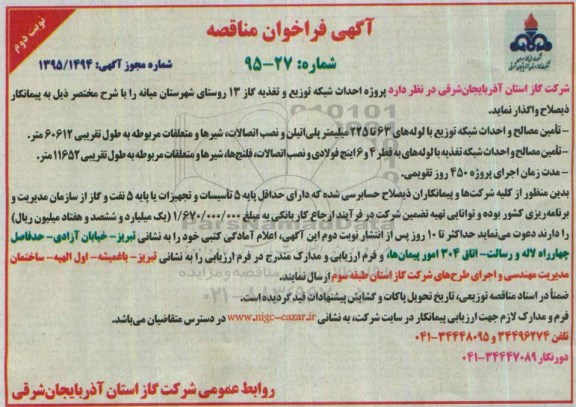 نوبت دوم
آگهی فراخوان مناقصه
شماره: ۲۷-۹۵
شماره مجوز آگهی: ۱۳۹۵/۱۴۹۴
شرکت گاز استان آذربایجان‌شرقی در نظر دارد پروژه احداث شبکه توزیع و تغذیه گاز ۱۳ روستای شهرستان میانه را با شرح مختصر ذیل به پیمانکار
ذیصلاح واگذار نماید.
- تأمین مصالح و احداث شبکه توزیع با لوله‌های ۶۳ تا ۲۲۵ میلیمتر پلی‌اتیلن و نصب اتصالات، شیرها و متعلقات مربوطه به طول تقریبی ۶۰۶۱۲ متر.
- تأمین مصالح و احداث شبکه تغذیه با لوله‌های به قطر ۴ و ۶ اینچ فولادی و نصب اتصالات، فلنج‌ها، شیرها و متعلقات مربوطه به طول تقریبی ۱۱۶۵۲ متر.
- مدت زمان اجرای پروژه ۴۵۰ روز تقویمی.
بدین منظور از کلیه شرکت‌ها و پیمانکاران ذیصلاح حسابرسی شده که دارای حداقل پایه ۵ تأسیسات و تجهیزات یا پایه ۵ نفت و گاز از سازمان مدیریت و
برنامه‌ریزی کشور بوده و توانایی تهیه تضمین شرکت در فرآیند ارجاع کار بانکی به مبلغ ۱/۶۷۰/۰۰۰/۰۰۰ (یک میلیارد و ششصد و هفتاد میلیون ریال)
را دارند دعوت می‌نماید حداکثر تا ۱۰ روز پس از انتشار نوبت دوم این آگهی، اعلام آمادگی کتبی خود را به نشانی تبریز- خیابان آزادی- حدفاصل
چهارراه لاله و رسالت- اتاق ۳۰۴ امور پیمان‌ها، و فرم ارزیابی و مدارک مندرج در فرم ارزیابی را به نشانی تبریز- باغمیشه- اول الهیه- ساختمان
مدیریت مهندسی و اجرای طرح‌های شرکت گاز استان طبقه سوم ارسال نمایند.
ضمناً در اسناد مناقصه توزیعی، تاریخ تحویل پاکات و گشایش پیشنهادات قید گردیده است.
فرم و مدارک لازم جهت ارزیابی پیمانکار در سایت شرکت، به نشانی www.nigc-eazar.ir در دسترس متقاضیان می‌باشد.
تلفن ۳۴۴۹۶۲۷۴ و ۳۴۴۴۸۰۹۵-۰۴۱
دورنگار ۳۴۴۴۷۰۸۹-۰۴۱
روابط عمومی شرکت گاز استان آذربایجان‌شرقی